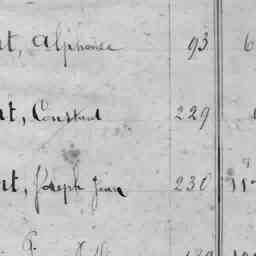 nt, Alphonse 93 6
nt, Constant 229
nt, Joseph Jean 230 11